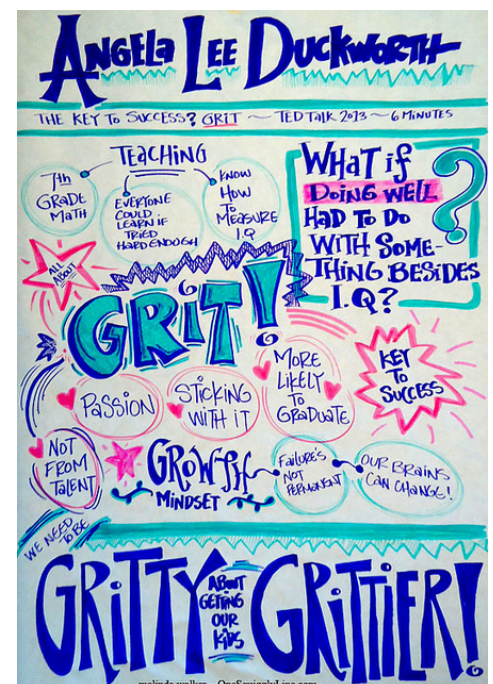 ANGELA LEE DUCKWORTH
THE KEY TO SUCCESS? GRIT ~ TED TALK 2013 ~ 6 MINUTES
TEACHING
7th
GRADE
MATH
EVERYONE
COULD
LEARN IF
TRIED
HARD ENOUGH
KNOW
HOW
TO
MEASURE
I.Q
WHAT if
DOING WELL
HAD TO DO
WITH SOME-
THING BESIDES
I.Q?
ALL
ABOUT
GRIT!
PASSION
STICKING
WITH IT
MORE
LIKELY
TO
GRADUATE
KEY
TO
SUCCESS
NOT
FROM
TALENT
GROWTH
MINDSET
FAILURE'S
NOT
PERMANENT
OUR BRAINS
CAN CHANGE!
WE NEED
TO BE
GRITTY
ABOUT
GETTING
OUR
KIDS
GRITTIER!
melinda walker OneSquigglyLine.com